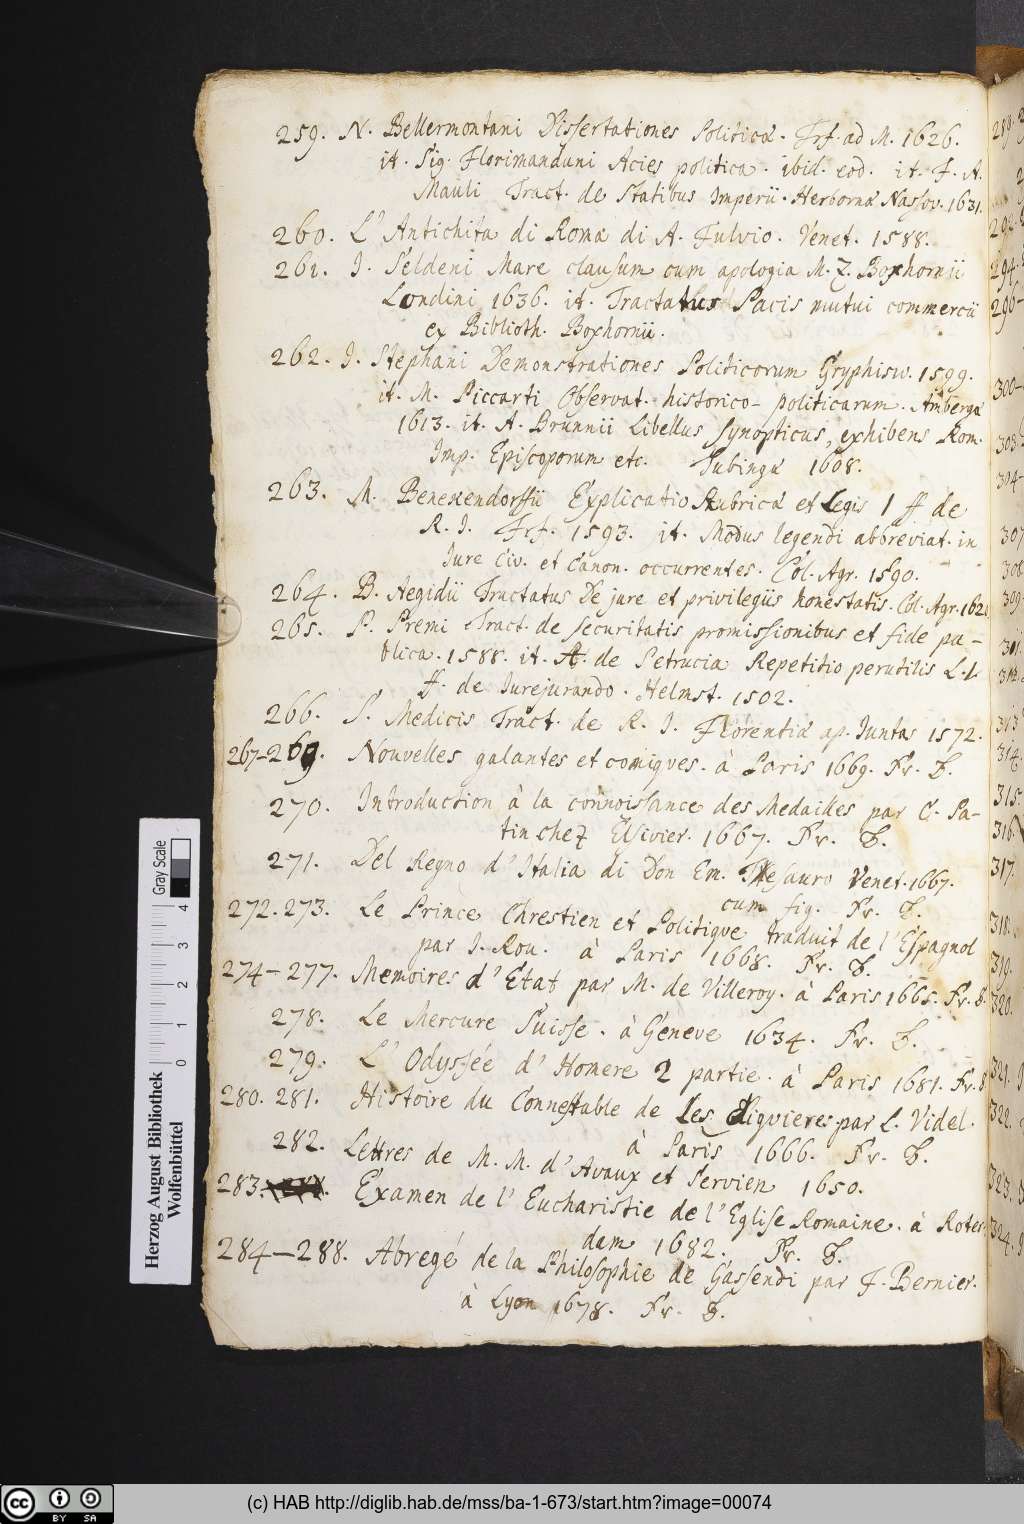 259. N. Bellermontani Dissertationes Politicæ. Frf. ad M. 1626.
it. Sig. Florimanduni Acies politica. ibid. eod. it. F. A.
Mauli Tract. de Statibus Imperii. Herbornæ Nassov. 1631.
260. L'Antichita di Roma di A. Fulvio. Venet. 1588.
261. J. Seldeni Mare clausum cum apologia M. Z. Boxhornii
Londini 1636. it. Tractatus Pacis mutui commercii
ex Biblioth. Boxhornii.
262. J. Stephani Demonstrationes Politicorum Gryphisw. 1599.
it. M. Piccarti Observat. historico-politicarum. Ambergæ
1613. it. A. Brunnii Libellus synopticus, exhibens Rom.
Imp. Episcoporum etc. Tubingæ 1608.
263. M. Benekendorffii Explicatio Rubricæ et Legis 1 ff de
R. J. Frf. 1593. it. Modus legendi abbreviat. in
Jure Civ. et Canon. occurrentes. Col. Agr. 1590.
264. B. Aegidii Tractatus De jure et privilegiis honestatis. Col. Agr. 162
265. P. Premi Tract. de securitatis promissionibus et fide pu-
blica. 1588. it. A. de Petrucia Repetitio perutilis L. 1.
ff. de Jurejurando. Helmst. 1502.
266. S. Medicis Tract. de R. J. Florentiæ ap. Juntas 1572.
267-269. Nouvelles galantes et comiques. à Paris 1669. Fr. B.
270. Introduction à la connoissance des Medailles par C. Pa-
tin chez Elsivier. 1667. Fr. B.
271. Del Regno d'Italia di Don Em. Thesauro Venet. 1667.
cum fig. Fr. B.
272. 273. Le Prince Chrestien et Politique traduit de l'Espagnol
par J. Rou. à Paris 1668. Fr. B.
274-277. Memoires d'Etat par M. de Villeroy. à Paris 1665. Fr. B.
278. Le Mercure Suisse. à Geneve 1634. Fr. B.
279. L'Odyssée d'Homere 2 partie. à Paris 1681. Fr. B.
280. 281. Histoire du Connestable de Les Diguieres par L. Videl.
à Paris 1666. Fr. B.
282. Lettres de M. M. d'Avaux et Servien 1650.
283. Examen de l'Eucharistie de l'Eglise Romaine. à Roter-
dam 1682. Fr. B.
284-288. Abregé de la Philosophie de Gassendi par F. Bernier.
à Lyon 1678. Fr. B.
294.
296-
300-
307
308
309
313
314.
315.
316.
317.
318.
319.
320.
321.
322.
323.
324.
Gray Scale
0 1 2 3 4
Herzog August Bibliothek
Wolfenbüttel
cc BY SA
(c) HAB http://diglib.hab.de/mss/ba-1-673/start.htm?image=00074